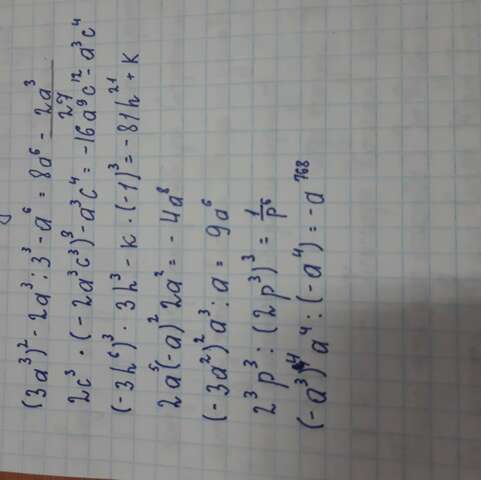 (3a³)² - 2a³ : 3³ - a⁶ = 8a⁶ - 2a³/27
2c³ · (-2a³c³)³ - a³c⁴ = -16a⁹c¹² - a³c⁴
(-3h⁶)³ · 3h³ - k · (-1)³ = -81h²¹ + k
2a⁵(-a)² 2a² = -4a⁸
(-3a²)² a³ : a = 9a⁶
2³p³ : (2p³)³ = 1/p⁶
(-a³)⁴ a⁴ : (-a⁴) = -a⁷⁶⁸